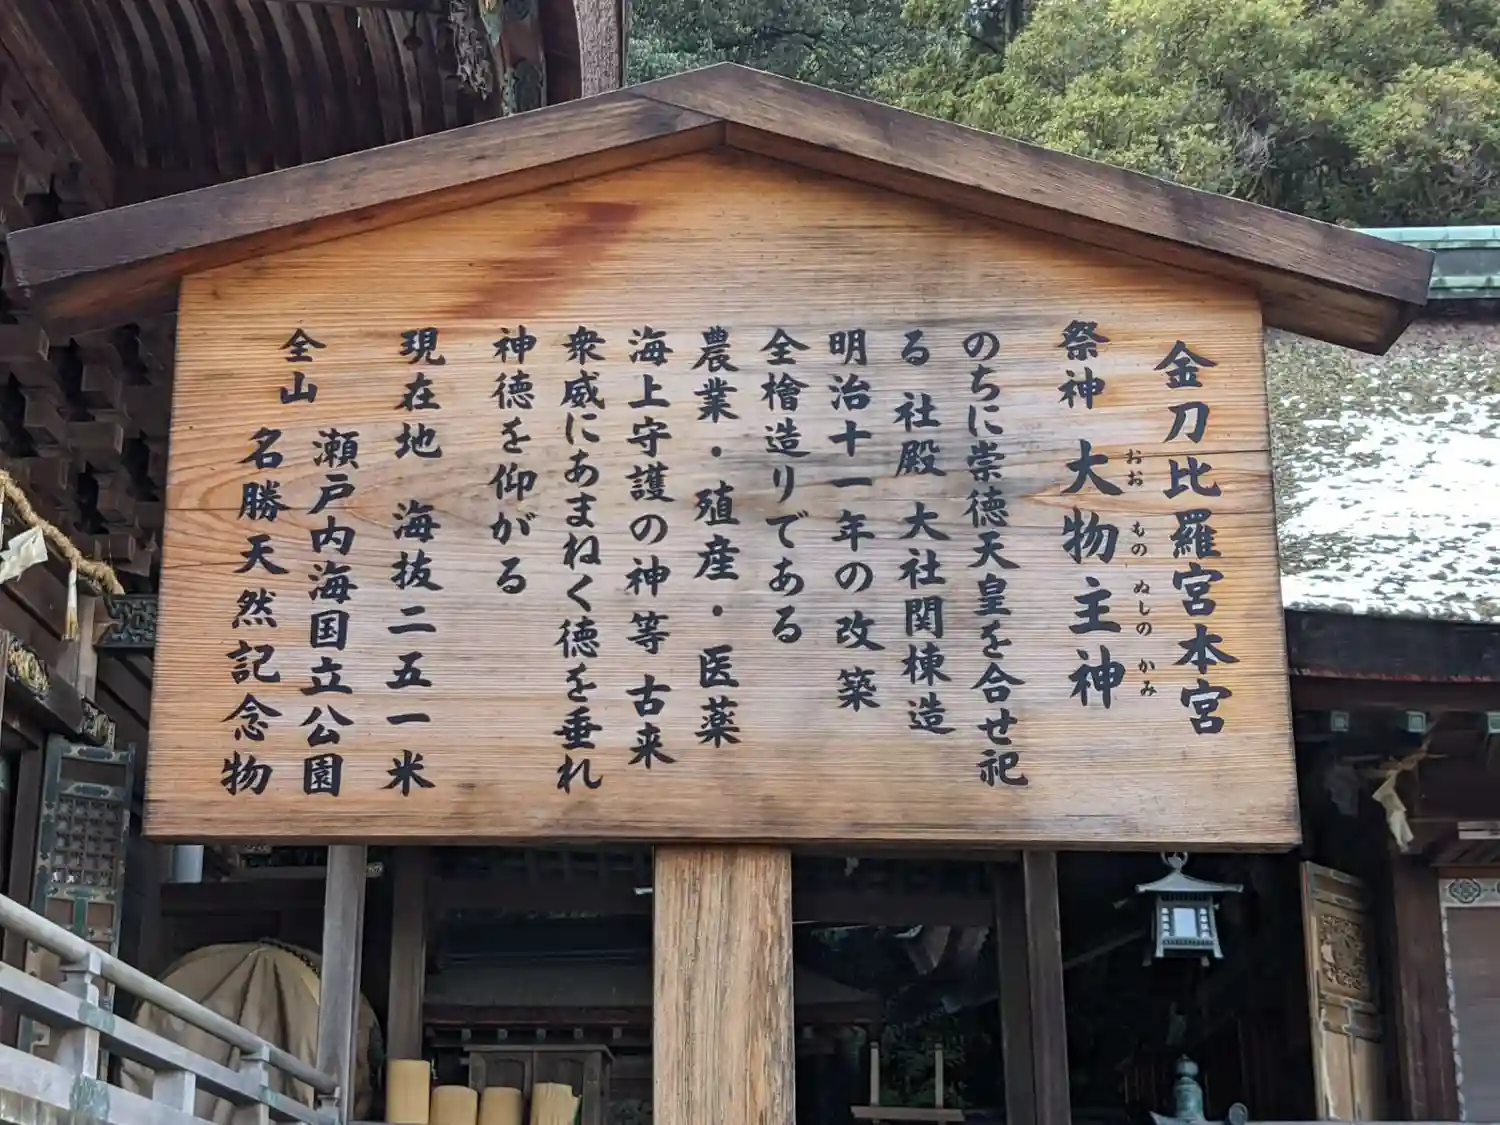 金刀比羅宮本宮
祭神 大物主神
おお もの ぬしの かみ
のちに崇徳天皇を合せ祀
る 社殿 大社関棟造
明治十一年の改築
全檜造りである
農業・殖産・医薬
海上守護の神等 古来
衆威にあまねく徳を垂れ
神徳を仰がる
現在地 海抜二五一米
全山
瀬戸内海国立公園
名勝天然記念物